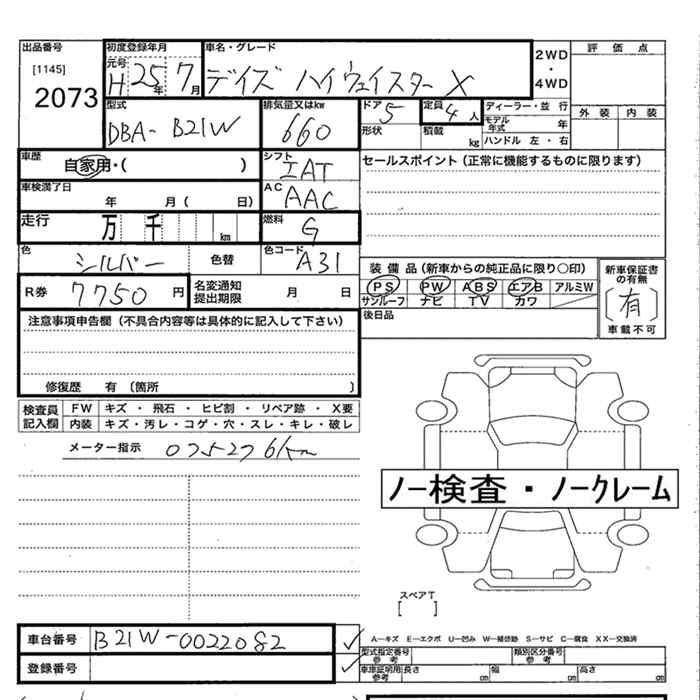 出品番号
[1145]
2073
初度登録年月
元号 H 25年 7月
車名・グレード
デイズ ハイウェイスター X
2WD
・
4WD
評価点
外装 内装
型式
DBA-B21W
排気量又はkw
660
ドア 5
形状
定員 4人
積載 kg
ディーラー・並行
モデル年式 年
ハンドル 左・右
車歴
自家用・( )
シフト
IAT
セールスポイント(正常に機能するものに限ります)
車検満了日
年 月( 日)
AC
AAC
走行
万 千 km
燃料
G
色
シルバー
色替
色コード
A31
装備品(新車からの純正品に限り○印)
PS PW ABS エアB アルミW
サンルーフ ナビ TV カワ
新車保証書
の有無
(有)
車載不可
R券 7750円
名変通知
提出期限
月 日
後日品
注意事項申告欄(不具合内容等は具体的に記入して下さい)
修復歴 有(箇所 )
検査員
記入欄
FW キズ・飛石・ヒビ割・リペア跡・X要
内装 キズ・汚レ・コゲ・穴・スレ・キレ・破レ
メーター指示 075276km
ノー検査・ノークレーム
スペアT
[ ]
車台番号 B21W-0022082
登録番号
A―キズ E―エクボ U―凹み W―補修跡 S―サビ C―腐食 XX―交換済
型式指定番号
参考
類別区分番号
参考
車車証明用
参考
長さ cm 幅 cm 高さ cm